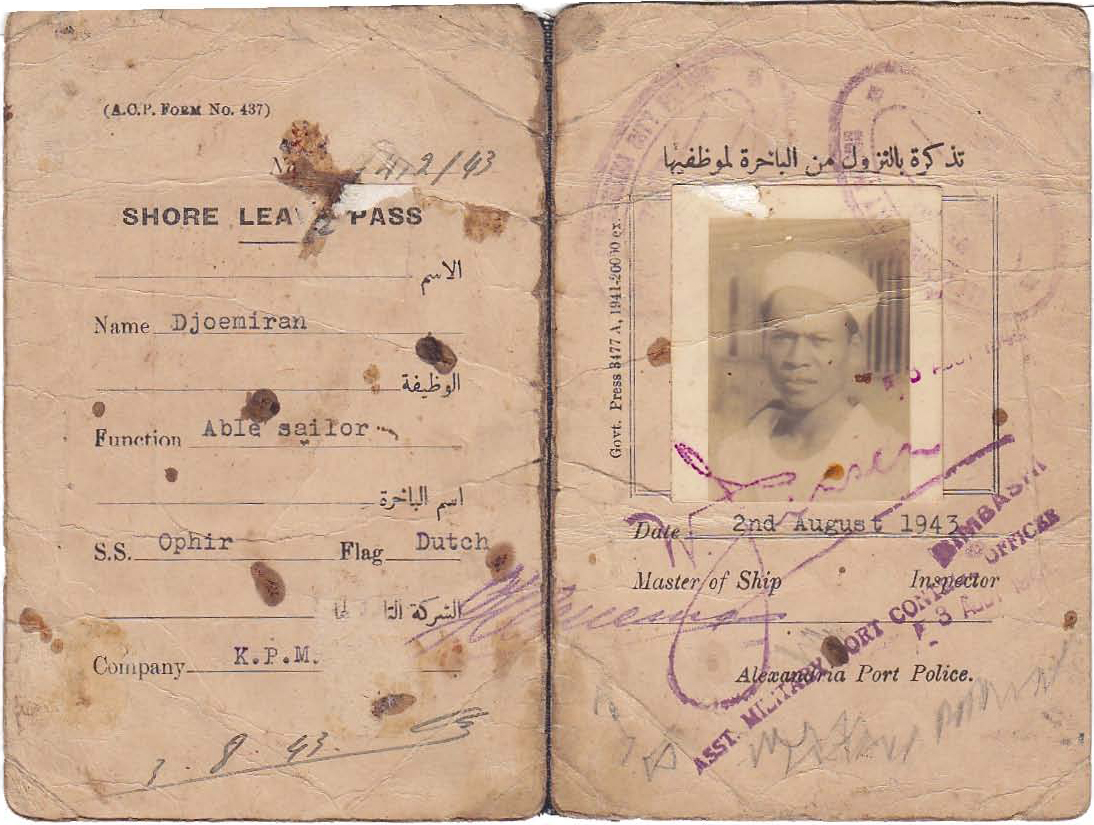 (A.C.P. FORM No. 437)
2/43
SHORE LEAVE PASS
الاسم
Name Djoemiran
الوظيفة
Function Able sailor
اسم الباخرة
S.S. Ophir Flag Dutch
الشركة
Company K.P.M.
3. 8. 43.
تذكرة بالنزول من الباخرة لموظفيها
Govt. Press 3477 A, 1941-20000 ex
Date 2nd August 1943
Master of Ship Inspector
BIMBASHI
ASST. MILITARY PORT CONTROL OFFICER
3 AOUT
Alexandria Port Police.